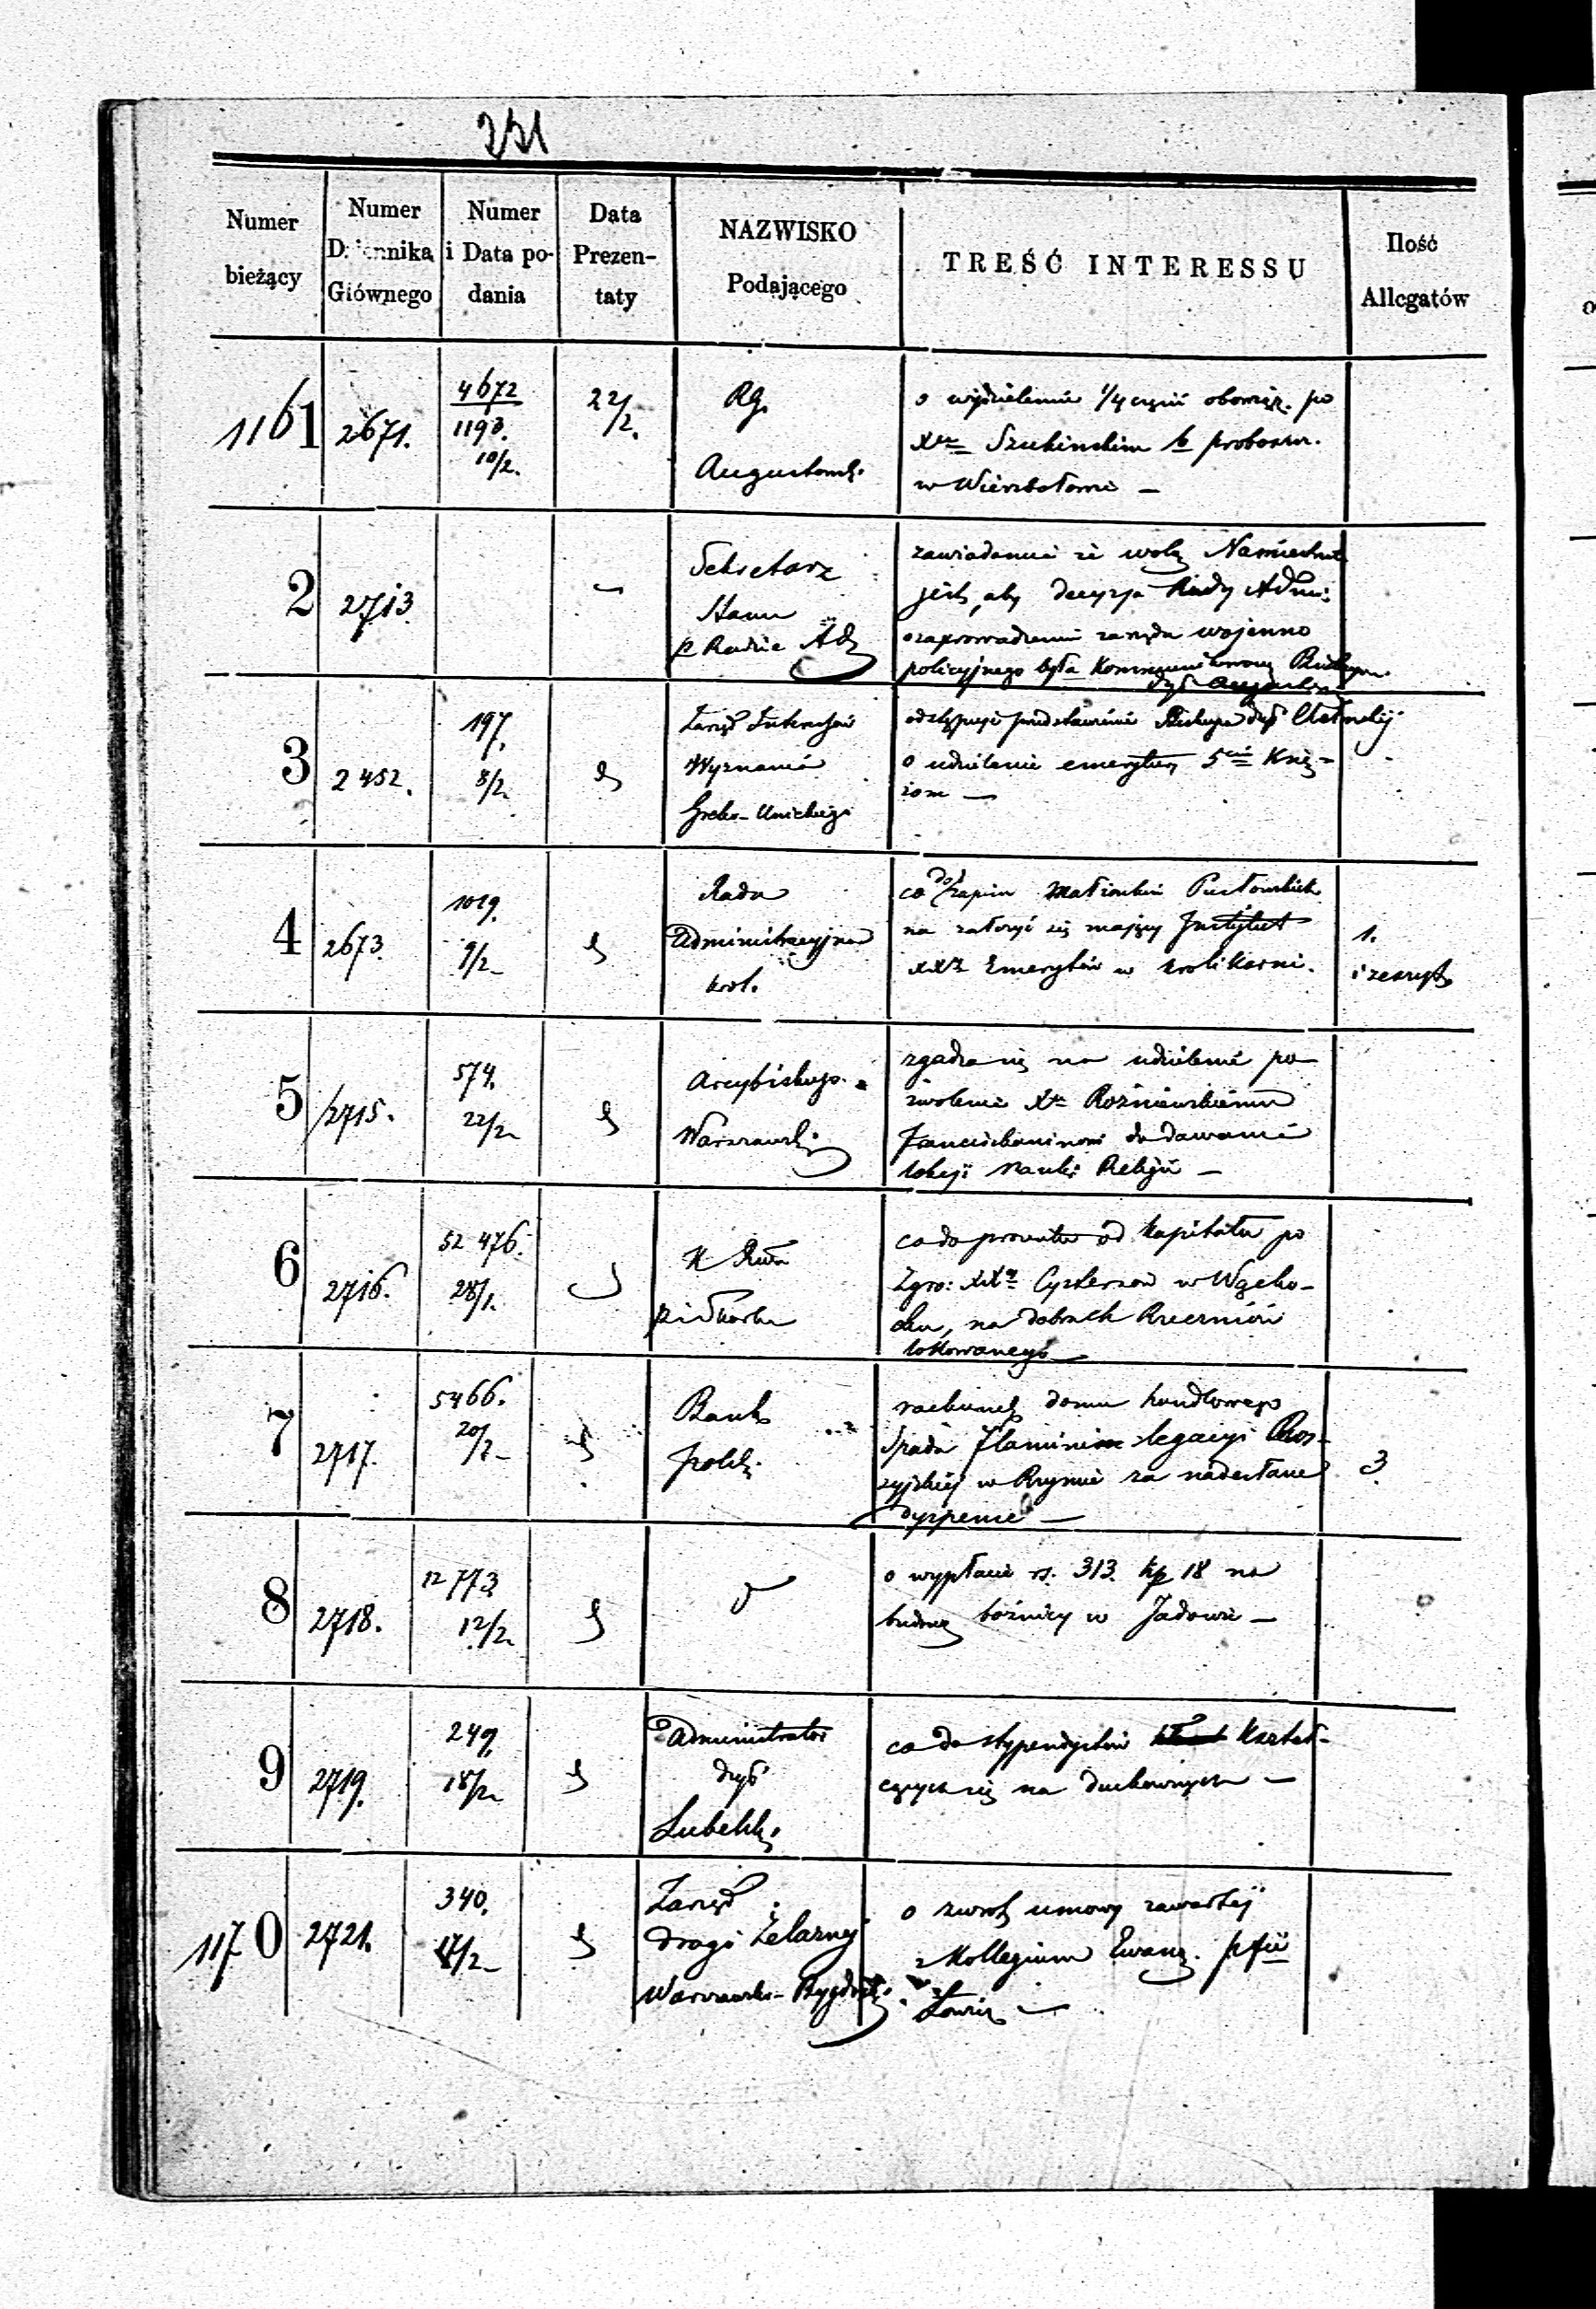 251
Numer bieżący
Numer Dziennika Głównego
Numer i Data podania
Data Prezentaty
NAZWISKO Podającego
TREŚĆ INTERESSU
Ilość Allegatów
1161
2671.
4672
1193.
10/2.
22/2.
RG.
Augustowsk.
o wydzielenie 1/4 części obowiąz. po
Szubinskim b proboszcz.
w Wierzbołowie —
2
2713
Sekretarz
Stanu
p Radzie Ad
zawiadamia że wolą Namiestnik
jest, aby decyzja Rady Admi:
o zaprowadzeniu zarządu wojenno
policyjnego była kommunikowaną Biskupom
dyś August
3
2452.
197.
8/2.
Zarząd Interessów
Wyznania
Greko-Unickiego
odstępuje przedstawienie Biskupa dyś Chełmskiej
o udzielenie emerytury 5ciu Księ-
żom —
4
2673.
1029.
9/2
Rada
Administracyjna
Król.
co do zapisu Małżonków Pusłowskich
na założyć się mający Instytut
XXży Emerytów w Królikarni.
1.
i zeszyt
5
2715.
574.
22/2
Arcybiskup
Warszawski
zgadza się na udzielenie po
zwolenia Xdu Roźniewskiemu
Franciszkaninowi do dawania
lekcji nauki Religii —
6
2716.
52 476.
28/1.
K Rzą
p i Skarbu
co do procentu od kapitału po
Zgro: XXy Cystersów w Wącho-
cku, na dobrach Rzeczniów
lokowanego —
7
2717.
5466.
20/2
Bank
polski
rachunek domu handlowego
Spada Flamini legacyi Ros-
syjskiej w Rzymie za nadesłane
dyspensę —
3
8
2718.
12 773
12/2
o wypłacie rs. 313. kp 18 na
budowę bóżnicy w Jadowie —
9
2719.
249.
18/2
Administrator
dyś
Lubelsk.
co do stypendystów Kształ-
cących się na duchownych —
1170
2721.
340.
17/2
Zarząd
Drogi Żelaznej
Warszawsko-Bydgosk.
o zwrot umowy zawartej
z Kollegium Ewang.
Łowicz —